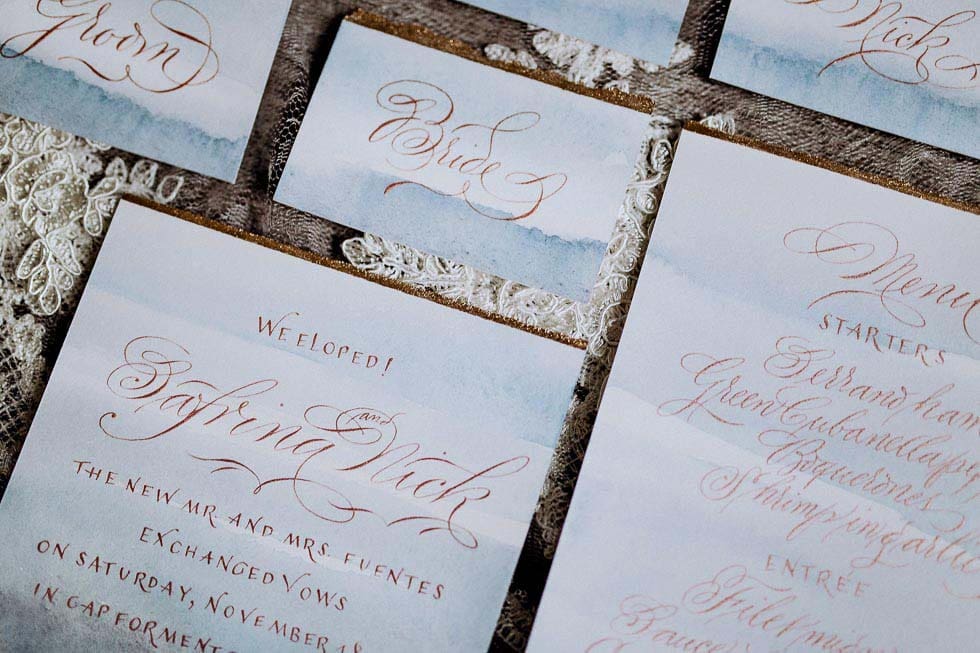 Groom
Bride
Nick
WE ELOPED!
Safrina and Nick
THE NEW MR. AND MRS. FUENTES
EXCHANGED VOWS
ON SATURDAY, NOVEMBER 18
IN CAP FORMENT
Menu
STARTERS
Serrano ham
Green Cubanella
Boquerones
Shrimp in garlic
ENTRÉE
Filet mig